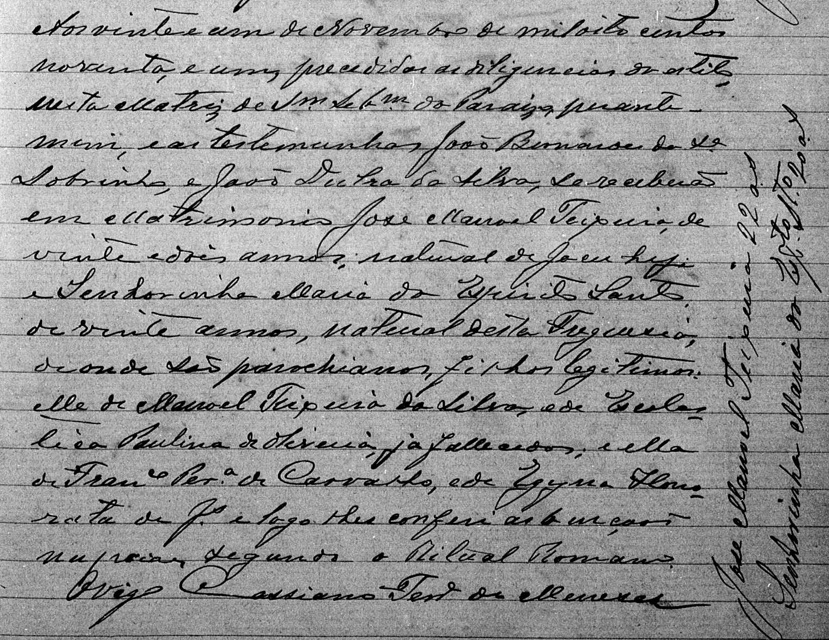 Aos vinte e um de Novembro de mil oito centos
noventa, e um, precedidas as diligencias do estilo,
nesta Matriz de Sm. Sebm. do Paraizo, perante
mim, e as testemunhas João Bernardes da Sa
Sobrinho, e João Dutra da Silva, se receberão
em Matrimonio José Manoel Teixeira, de
vinte e dois annos, natural de Jacuhy,
e Senhorinha Maria do Espirito Santo
de vinte annos, natural desta Freguezia,
de onde são parochianos, filhos legitimos:
elle de Manoel Teixeira da Silva, e de Escolas-
tica Paulina de Oliveira, já fallecidos; e ella
de Franco Pera de Carvalho, e de Egypia Hono-
rata de Js. e logo lhes conferi as bençaõs
nupciaes, segundo o Ritual Romano.
O Vigo Cassiano Ferra de Menezes
José Manoel Teixeira 22 as
Senhorinha Maria do Espto Sto 20 as